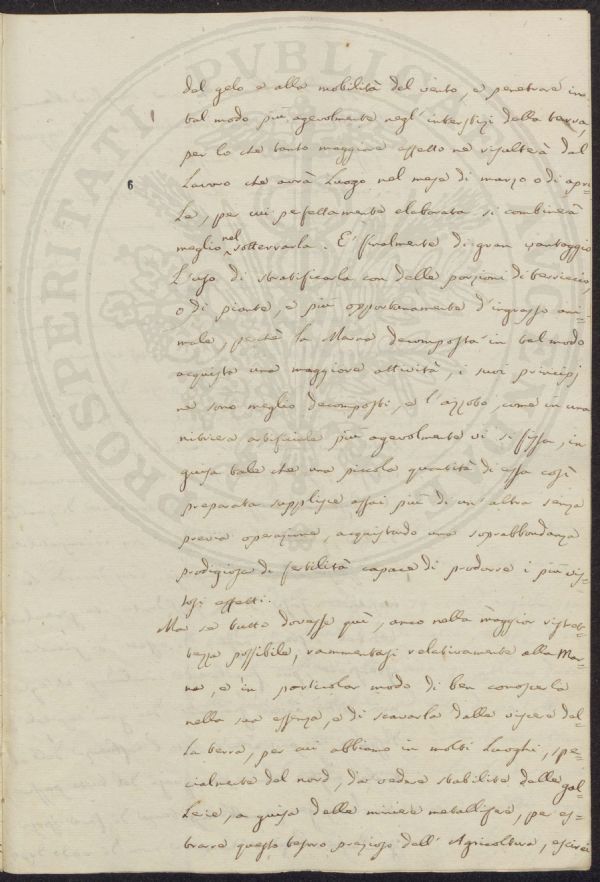 del gelo e alla mobilità del vento, e penetrare in
tal modo più agevolmente negl'interstizi della terra,
per lo che tanto maggiore effetto ne risulterà dal
Lavoro che avrà Luogo nel mese di marzo o di apri=
6
le, per cui perfettamente elaborata si combinerà
meglio nel sotterrarla. E' finalmente di gran vantaggio
L'uso di stratificarla con delle porzioni di terriccio,
o di piante, e più opportunamente d'ingrasso ani=
male, perchè la Marna decomposta in tal modo
acquista una maggiore attività, i suoi principj
ne sono meglio decomposti, e l'azzoto, come in una
nitriera artificiale più agevolmente vi si fissa, in
guisa tale che una piccola quantità di essa così
preparata supplisce assai più di un'altra senza
previa operazione, acquistando una soprabbondanza
prodigiosa di fertilità capace di produrre i più vis=
tosi effetti.
Ma se tutto dovesse quì, anco nella maggior ristret=
tezza possibile, rammentarsi relativamente alla Mar=
na, e in particolar modo di ben conoscerla
nella sua essenza, e di scavarla dalle viscere del=
La terra, per cui abbiamo in molti Luoghi, spe=
cialmente del nord, da vedere stabilite delle gal=
Lerie, a guisa delle miniere metallifere, per es=
trarre questo tesoro prezioso dell'Agricoltura, escirei
PROSPERITATI PVBLICAE AVGENDAE